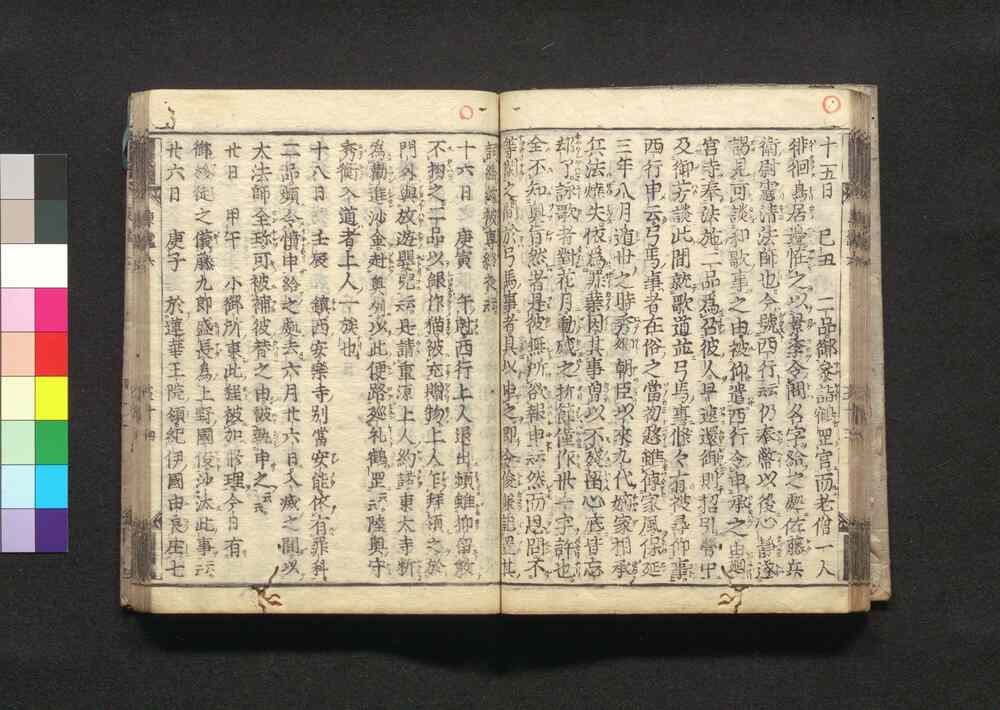 十五日　己丑　二品御參詣鶴岡宮而老僧一人
徘徊鳥居邊怪之以景季令問名字給之處佐藤兵
衛尉憲清法師也今號西行云云仍奉幣以後心靜遂
謁見可談和歌事之由被仰遣西行令申承之由廻
宮寺奉法施二品爲召彼人早速還御則招引營中
及御芳談此間就歌道並弓馬事條々有被尋仰事
西行申云弓馬事者在俗之當初憖雖傳家風保延
三年八月遁世之時秀郷朝臣以來九代嫡家相承
兵法燒失依爲罪業因其事曾以不殘留心底皆忘
却了詠歌者對花月動感之折節僅作卅一字許也
全不知奧旨然者是彼無所欲報申云云然而恩問不
等閑之間於弓馬事者具以申之即令俊兼記置其
詞給縡被專終夜云云
十六日　庚寅　午剋西行上人退出頻雖抑留敢
不拘之二品以銀作猫被充贈物上人乍拜領之於
門外與放遊嬰兒云云是請重源上人約諾東大寺料
爲勸進沙金赴奧州以此便路巡礼鶴岡云云陸奧守
秀衡入道者上人一族也
十八日　壬辰　鎮西安樂寺別當安能依有罪科
二品頻令憤申給之處去六月廿六日入滅之間以
大法師全珍可被補彼替之由被執申之云云
廿日　甲午　小御所東此程被加修理今日有
御移徙之儀藤九郎盛長爲上野國役沙汰此事云云
廿六日　庚子　於蓮華王院領紀伊國由良庄七